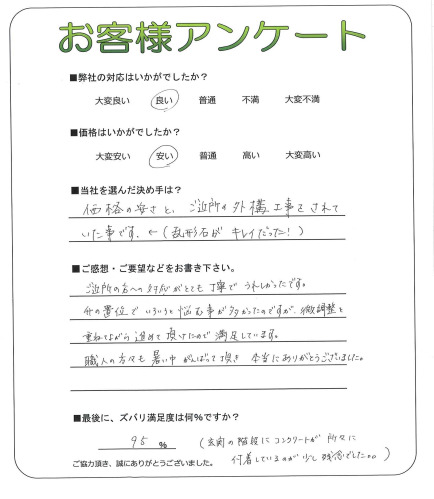 お客様アンケート
■弊社の対応はいかがでしたか？
大変良い 良い 普通 不満 大変不満
■価格はいかがでしたか？
大変安い 安い 普通 高い 大変高い
■当社を選んだ決め手は？
価格の安さと、ご近所の外構工事をされて
いた事です。←(乱形石がキレイだった！)
■ご感想・ご要望などをお書き下さい。
ご近所の方への対応がとても丁寧でうれしかったです。
外の置位でいろいろと悩む事が多かったのですが、微調整を
重ねてながら進めて頂けたので満足しています。
職人の方々も暑い中がんばって頂き 本当にありがとうございました。
■最後に、ズバリ満足度は何％ですか？
95 ％ (玄関の階段にコンクリートが所々に
付着しているのが少し残念でした。。)
ご協力頂き、誠にありがとうございました。